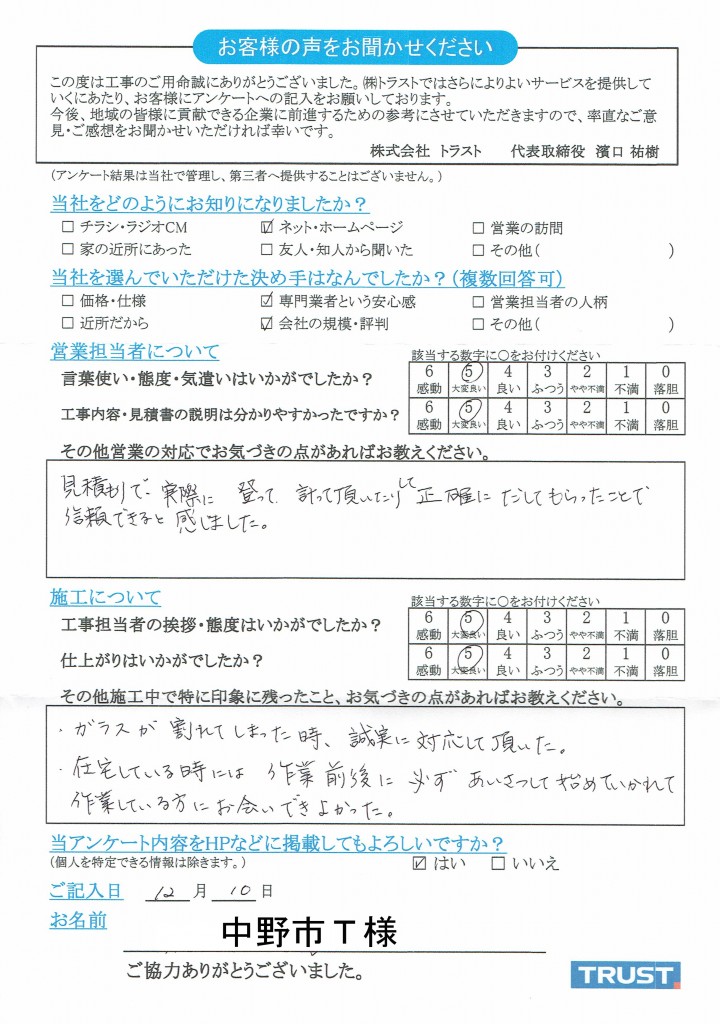 お客様の声をお聞かせください
この度は工事のご用命誠にありがとうございました。㈱トラストではさらによりよいサービスを提供して
いくにあたり、お客様にアンケートへの記入をお願いしております。
今後、地域の皆様に貢献できる企業に前進するための参考にさせていただきますので、率直なご意
見・ご感想をお聞かせいただければ幸いです。
株式会社 トラスト 代表取締役 濱口 祐樹
(アンケート結果は当社で管理し、第三者へ提供することはございません。)
当社をどのようにお知りになりましたか?
□ チラシ・ラジオCM ☑ ネット・ホームページ □ 営業の訪問
□ 家の近所にあった □ 友人・知人から聞いた □ その他( )
当社を選んでいただけた決め手はなんでしたか?(複数回答可)
□ 価格・仕様 ☑ 専門業者という安心感 □ 営業担当者の人柄
□ 近所だから ☑ 会社の規模・評判 □ その他( )
営業担当者について 該当する数字に○をお付けください
言葉使い・態度・気遣いはいかがでしたか? 6 5 4 3 2 1 0
感動 大変良い 良い ふつう やや不満 不満 落胆
工事内容・見積書の説明は分かりやすかったですか? 6 5 4 3 2 1 0
感動 大変良い 良い ふつう やや不満 不満 落胆
その他営業の対応でお気づきの点があればお教えください。
見積もりで、実際に 登って 計って頂いたりして 正確に だしてもらったことで
信頼できると 感じました。
施工について 該当する数字に○をお付けください
工事担当者の挨拶・態度はいかがでしたか? 6 5 4 3 2 1 0
感動 大変良い 良い ふつう やや不満 不満 落胆
仕上がりはいかがでしたか? 6 5 4 3 2 1 0
感動 大変良い 良い ふつう やや不満 不満 落胆
その他施工中で特に印象に残ったこと、お気づきの点があればお教えください。
・ガラスが 割れてしまった時、誠実に対応して頂いた。
・在宅している時には 作業前後に 必ず あいさつして始めていかれて
作業している方にお会いできよかった。
当アンケート内容をHPなどに掲載してもよろしいですか?
(個人を特定できる情報は除きます。) ☑ はい □ いいえ
ご記入日 12 月 10 日
お名前 中野市T様
ご協力ありがとうございました。
TRUST.